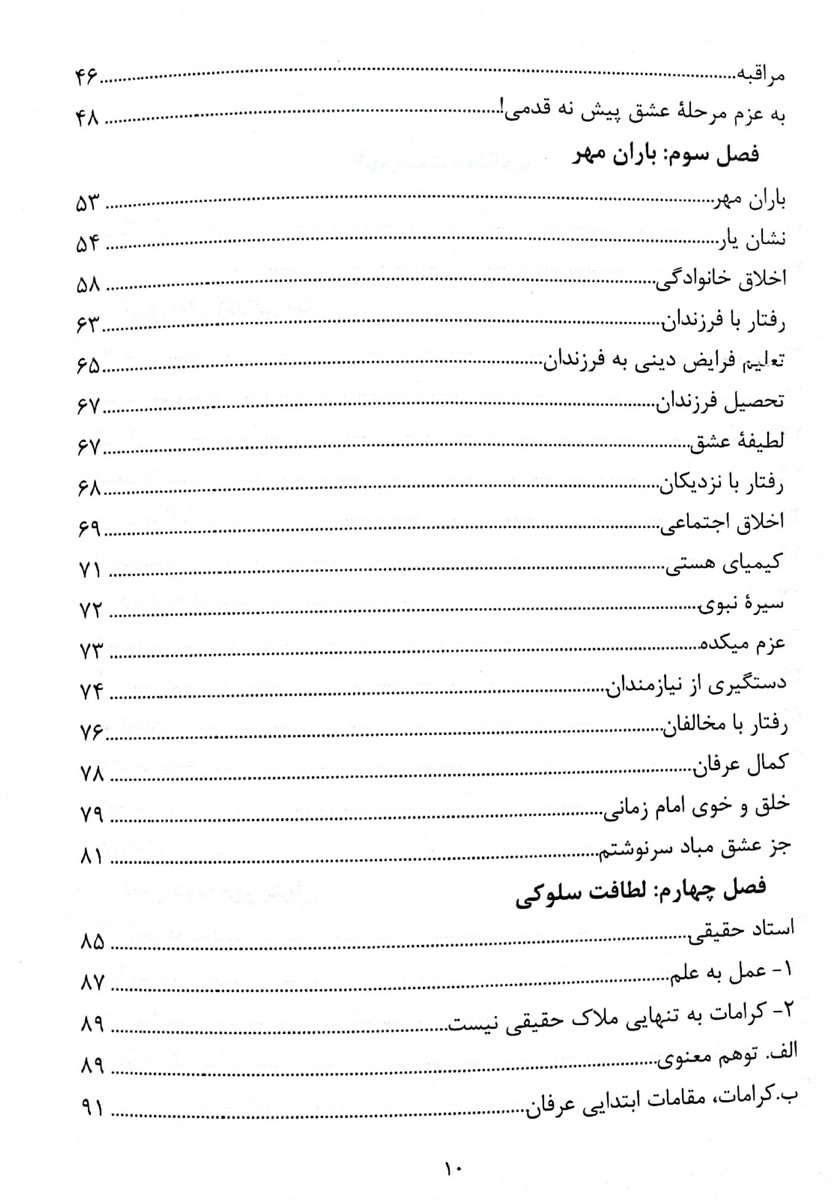 مراقبه..........۴۶
به عزم مرحلهٔ عشق پیش نه قدمی!..........۴۸
فصل سوم: باران مهر
باران مهر..........۵۳
نشان یار..........۵۴
اخلاق خانوادگی..........۵۸
رفتار با فرزندان..........۶۳
تعلیم فرایض دینی به فرزندان..........۶۵
تحصیل فرزندان..........۶۷
لطیفهٔ عشق..........۶۷
رفتار با نزدیکان..........۶۸
اخلاق اجتماعی..........۶۹
کیمیای هستی..........۷۱
سیرهٔ نبوی..........۷۲
عزم میکده..........۷۳
دستگیری از نیازمندان..........۷۴
رفتار با مخالفان..........۷۶
کمال عرفان..........۷۸
خلق و خوی امام زمانی..........۷۹
جز عشق مباد سرنوشتم..........۸۱
فصل چهارم: لطافت سلوکی
استاد حقیقی..........۸۵
۱- عمل به علم..........۸۷
۲- کرامات به تنهایی ملاک حقیقی نیست..........۸۹
الف. توهم معنوی..........۸۹
ب.کرامات، مقامات ابتدایی عرفان..........۹۱
۱۰